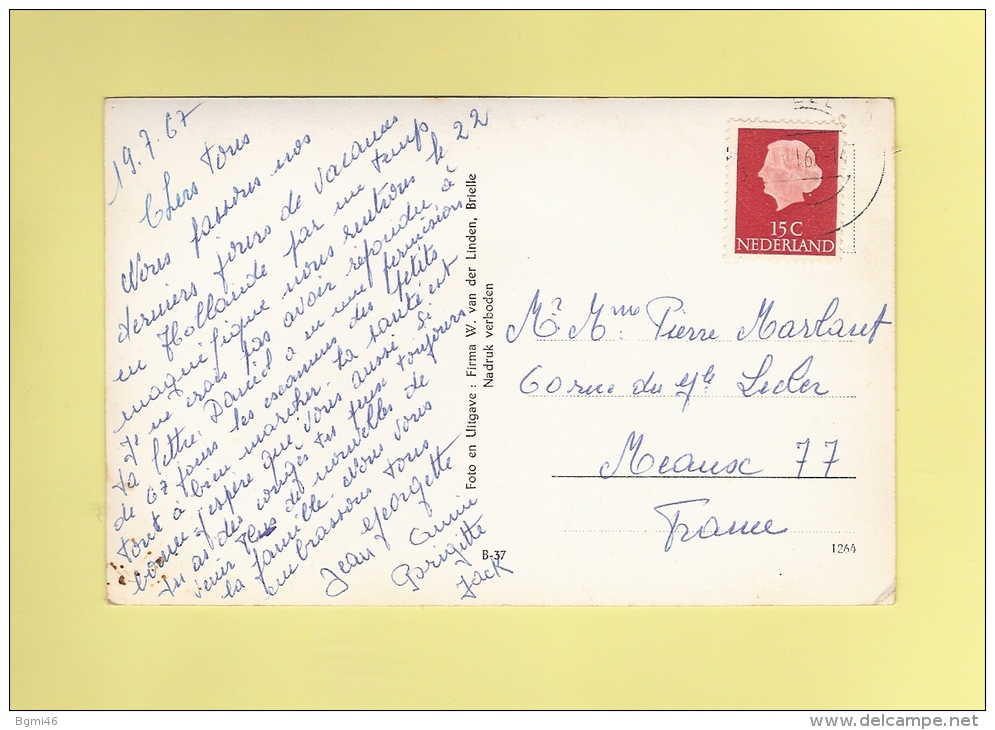 19.7.67
Chers tous
Nous passons nos
derniers jours de vacances
en Hollande par un temps
magnifique nous rentrons le 22
Je ne crois pas avoir répondu à
ta lettre. Daniel a eu une permission
de 67 jours les examens des petits
tout à bien marcher. La santé est
bonne j'espère que vous aussi. Si
tu as des congés tu peux toujours
venir
la famille. Nous vous
embrassons tous
Jean Georgette
Annie
Brigitte
Jack
Foto en Uitgave: Firma W. van der Linden, Brielle
Nadruk verboden
B-37
15C
NEDERLAND
Mr. Mme Pierre Marlaut
60 rue du Gl Lecler
Meaux 77
France
1264
Bgmi46
www.delcampe.net